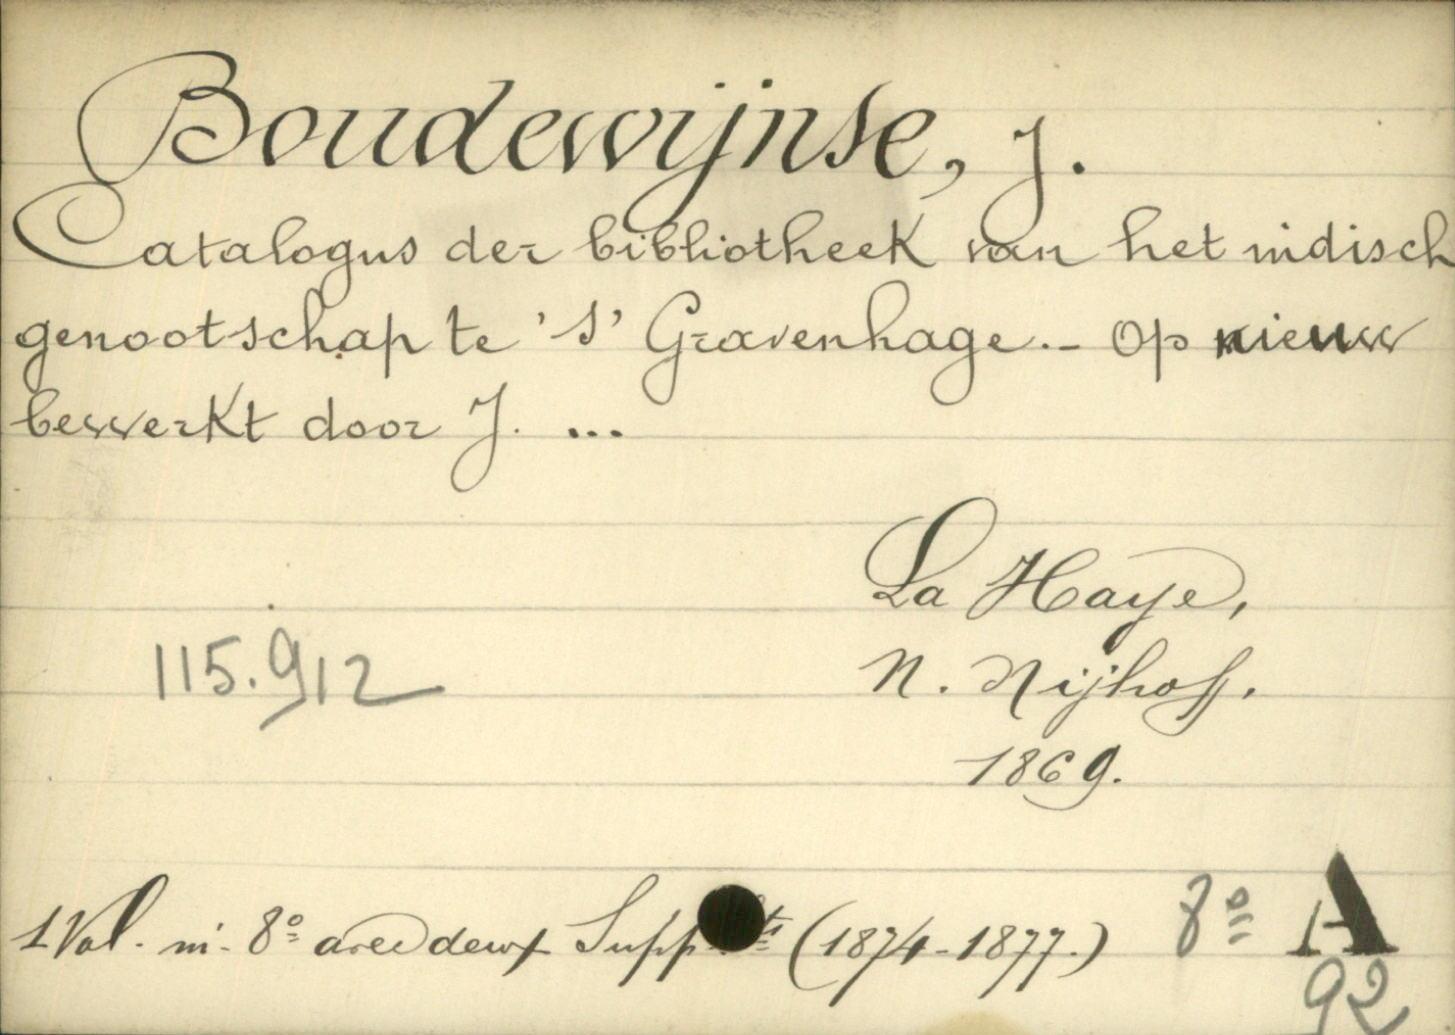 Boudewijnse, J.
Catalogus der bibliotheek van het indisch
genootschap te 's' Gravenhage.- Op nieuw
bewerkt door J. ...
La Haye,
115.912
N. Nijhoff.
1869.
1 Vol. in-8º avec deux (1874-1877.)
8º A
92